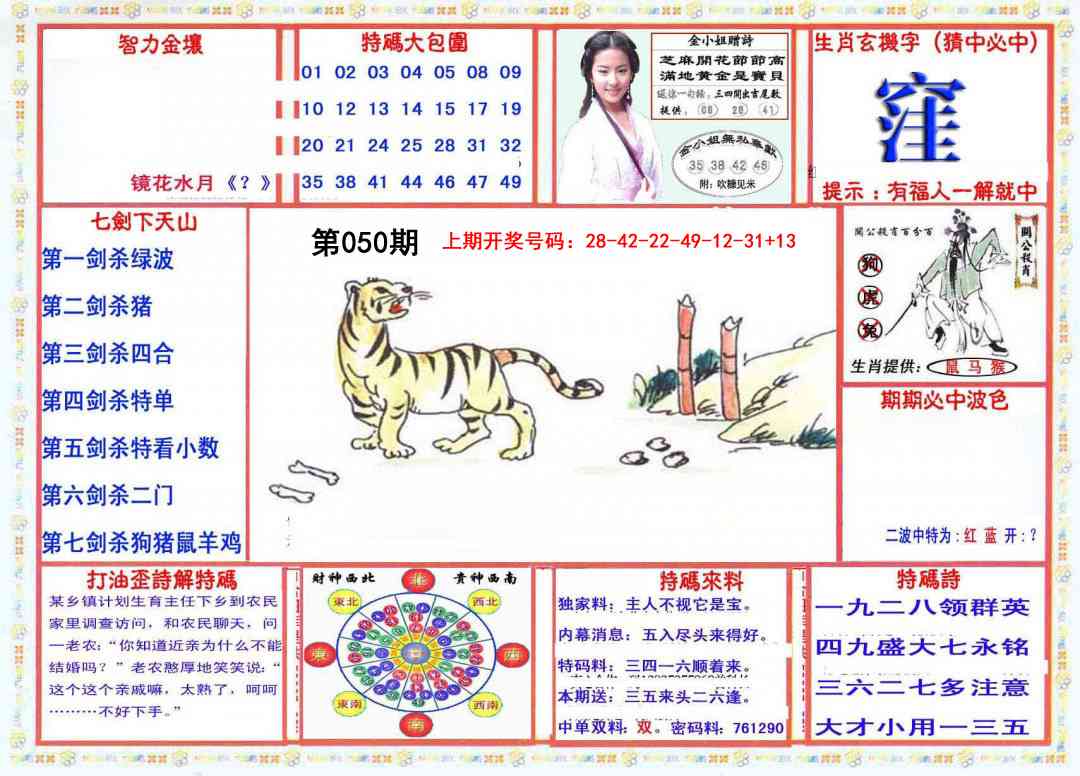 智力金壤
镜花水月《？》
特碼大包圍
01 02 03 04 05 08 09
10 12 13 14 15 17 19
20 21 24 25 28 31 32
35 38 41 44 46 47 49
金小姐赠詩
芝麻開花節節高
滿地黄金是寶貝
三四開出吉尾数
提供：08 28 41
金小姐無私奉獻
35 38 42 48
附：吹糠见米
生肖玄機字（猜中必中）
窪
提示：有福人一解就中
七劍下天山
第一剑杀绿波
第二剑杀猪
第三剑杀四合
第四剑杀特单
第五剑杀特看小数
第六剑杀二门
第七剑杀狗猪鼠羊鸡
第050期
上期开奖号码：28-42-22-49-12-31+13
關公殺肖百分百
關公殺肖
狗
虎
兔
生肖提供：鼠 马 猴
期期必中波色
二波中特为：红 蓝 开：？
打油歪詩解特碼
某乡镇计划生育主任下乡到农民
家里调查访问，和农民聊天，问
一老农：“你知道近亲为什么不能
结婚吗？”老农憨厚地笑笑说：“
这个这个亲戚嘛，太熟了，呵呵
………不好下手。”
财神西北
贵神西南
北
東北
西北
東
西
東南
西南
南
特碼來料
独家料：主人不视它是宝。
内幕消息：五入尽头来得好。
特码料：三四一六顺着来。
本期送：三五来头二六逢。
中单双料：双。密码料：761290
特碼詩
一九二八领群英
四九盛大七永铭
三六二七多注意
大才小用一三五